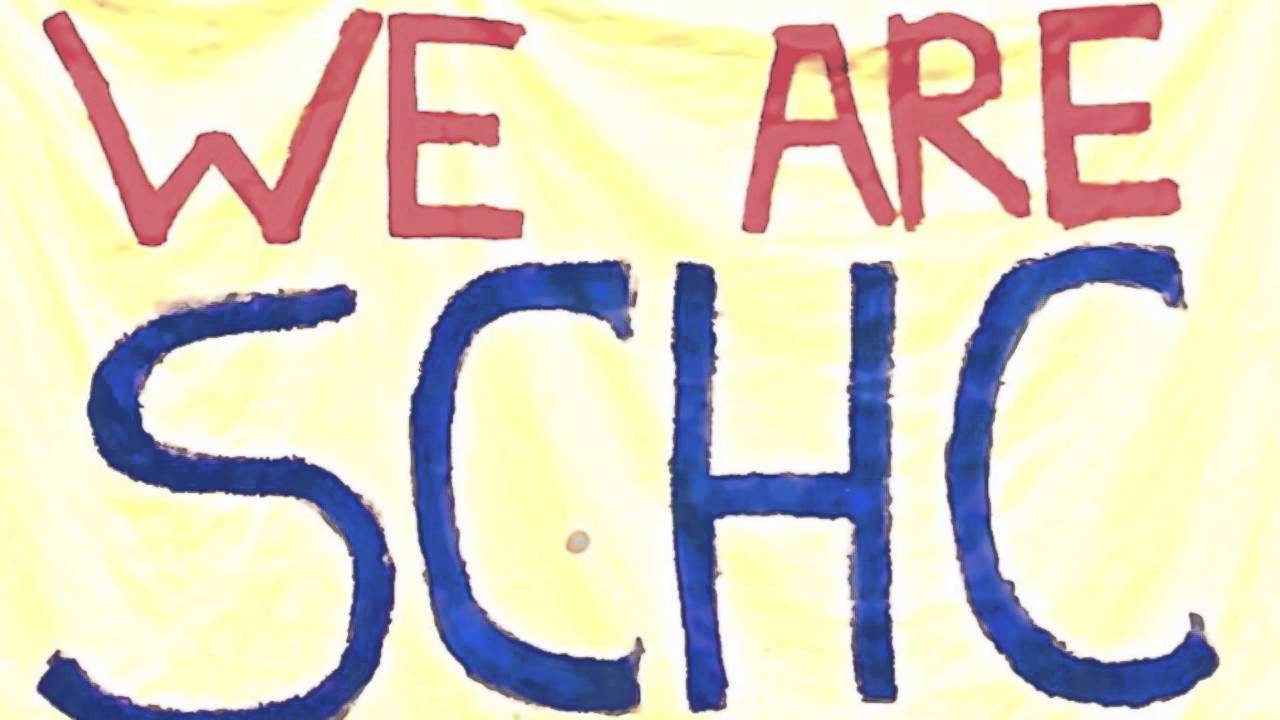 WE ARE
SCHC